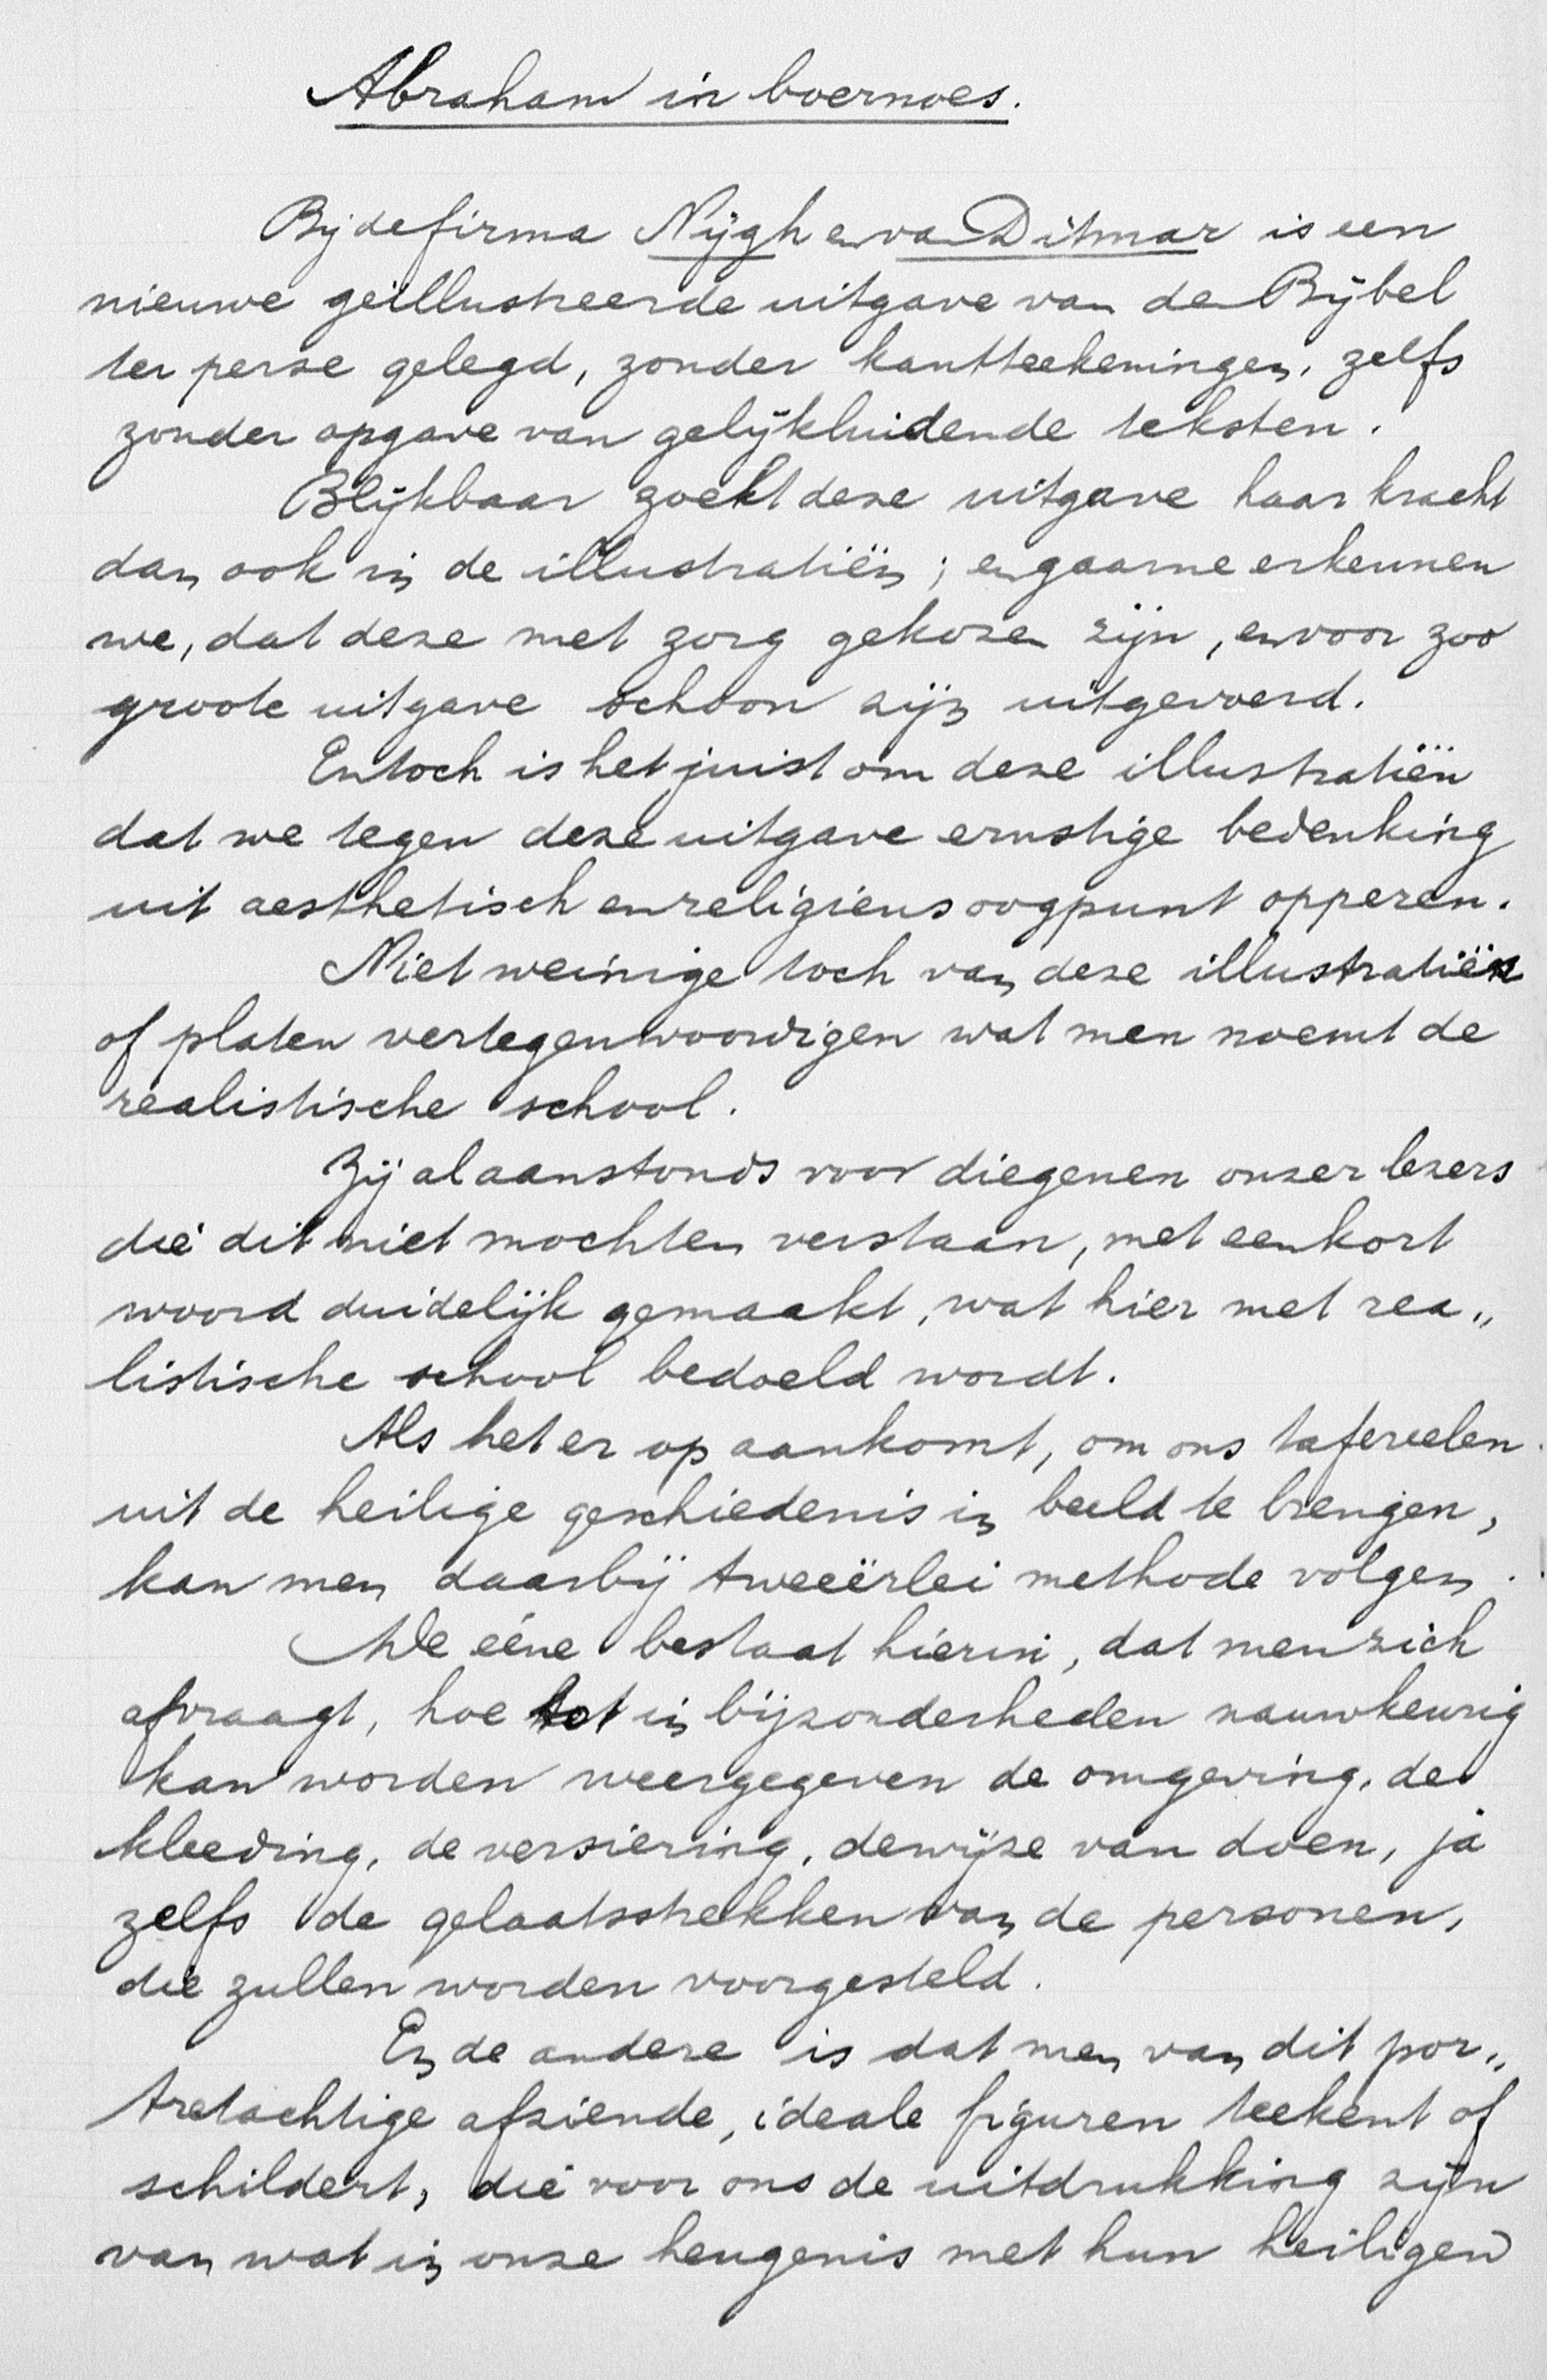 Abraham in boernoes.
Bij de firma Nijgh en van Ditmar is een
nieuwe geïllustreerde uitgave van de Bijbel
ter perse gelegd, zonder kantteekeningen, zelfs
zonder opgave van gelijkluidende teksten.
Blijkbaar zoekt deze uitgave haar kracht
dan ook in de illustratiën; en gaarne erkennen
we, dat deze met zorg gekozen zijn, en voor zoo
groote uitgave schoon zijn uitgevoerd.
En toch is het juist om deze illustratiën
dat we tegen deze uitgave ernstige bedenking
uit aesthetisch en religieus oogpunt opperen.
Niet weinige toch van deze illustratiën
of platen vertegenwoordigen wat men noemt de
realistische school.
Zij al aanstonds voor diegenen onzer lezers
die dit niet mochten verstaan, met een kort
woord duidelijk gemaakt, wat hier met rea„
listische school bedoeld wordt.
Als het er op aankomt, om ons tafereelen
uit de heilige geschiedenis in beeld te brengen,
kan men daarbij tweeërlei methode volgen.
De ééne bestaat hierin, dat men zich
afvraagt, hoe tot in bijzonderheden nauwkeurig
kan worden weergegeven de omgeving, de
kleeding, de versiering, de wijze van doen, ja
zelfs de gelaatstrekken van de personen,
die zullen worden voorgesteld.
En de andere is dat men van dit por„
tretachtige afziende, ideale figuren teekent of
schildert, die voor ons de uitdrukking zijn
van wat in onze heugenis met hun heiligen